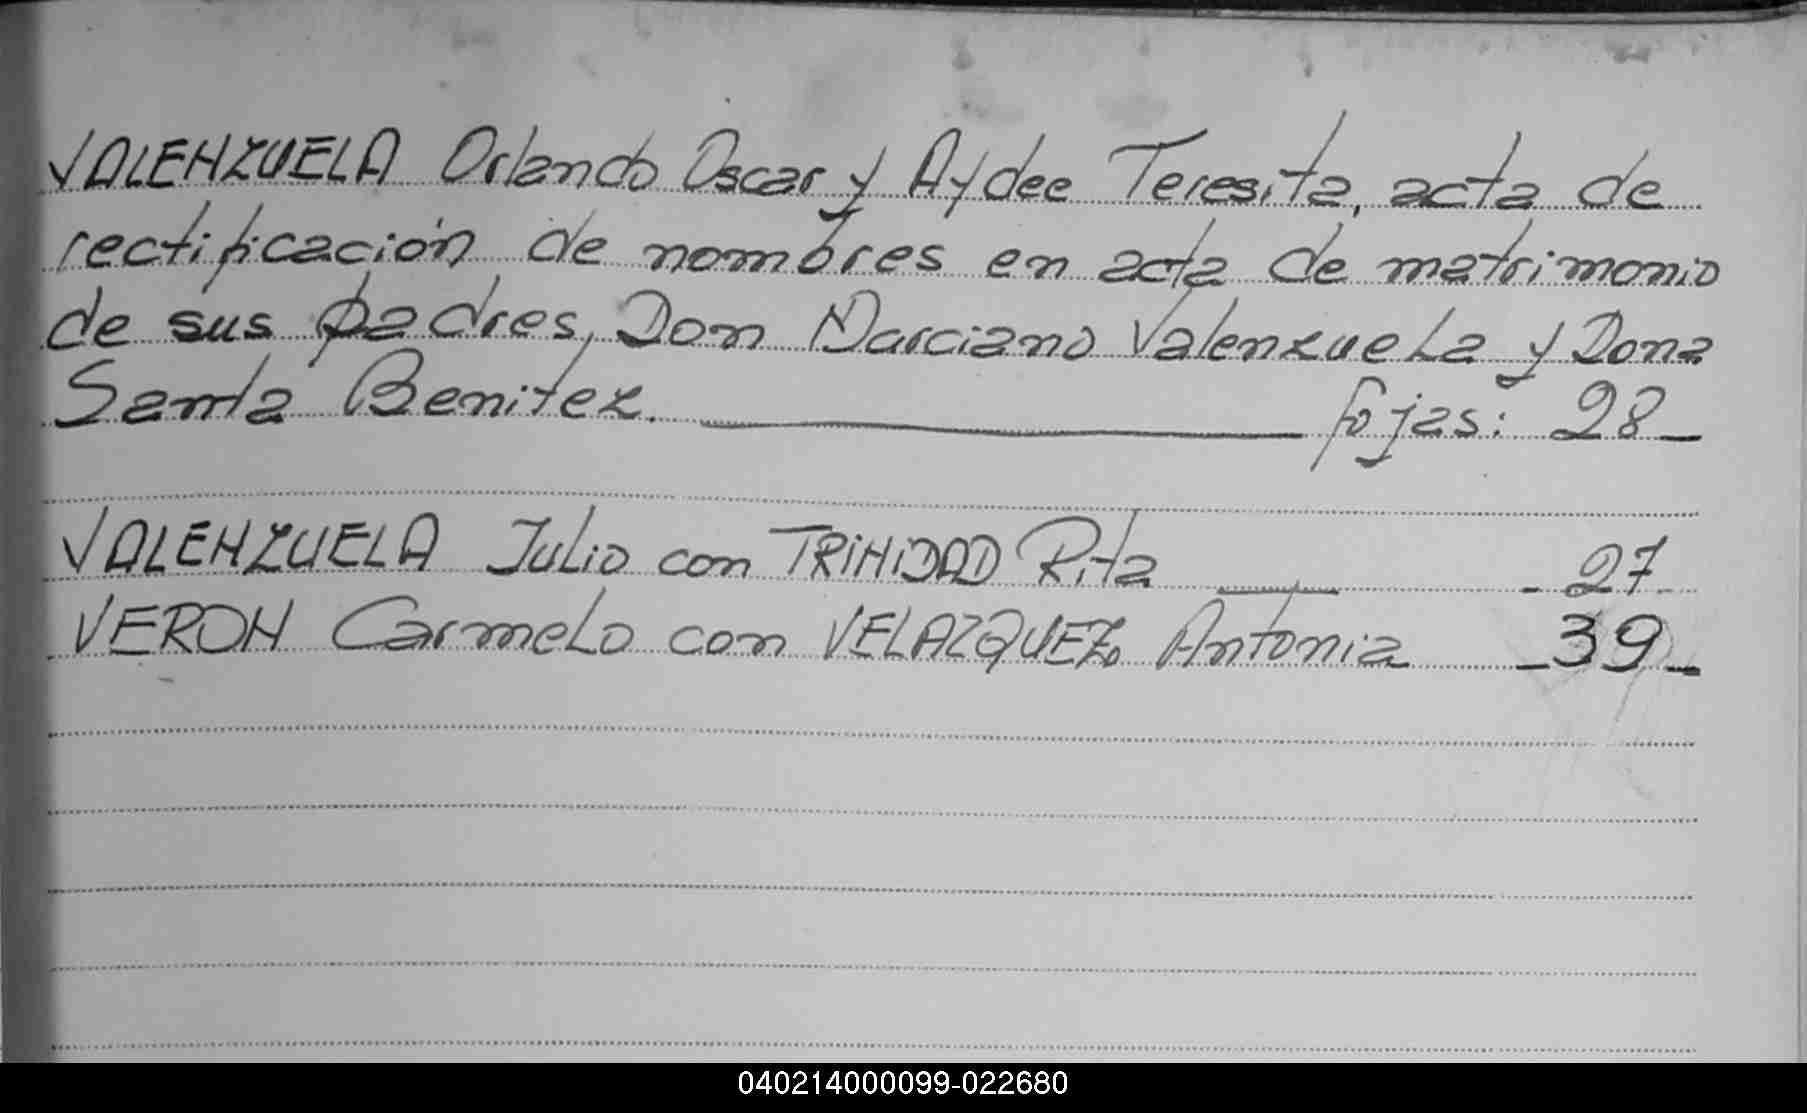 VALENZUELA Orlando Oscar y Aydee Teresita, acta de
rectificación de nombres en acta de matrimonio
de sus padres, Don Marciano Valenzuela y Dona
Santa Benitez. fojas: 28_
VALENZUELA Julio con TRINIDAD Rita - 27 -
VERON Carmelo con VELAZQUEZ Antonia _39_
040214000099-022680